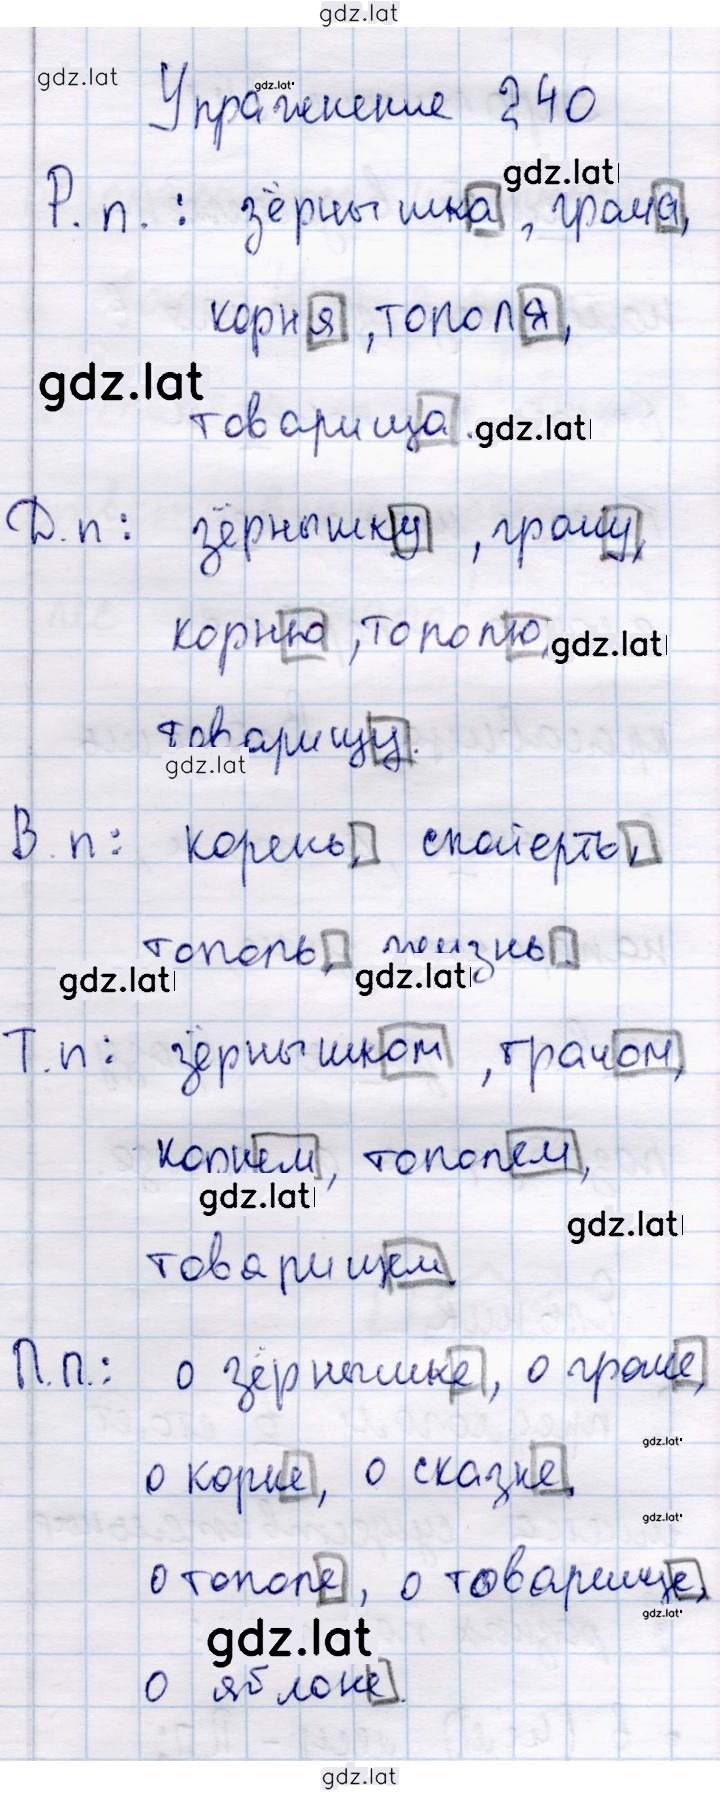 gdz.lat
gdz.lat
Упражнение 240
gdz.lat
gdz.lat
Р.п.: зёрнышка, грача,
корня, тополя,
gdz.lat
товарища. gdz.lat
Д.п: зёрнышку, грачу,
корню, тополю,
gdz.lat
товарищу.
gdz.lat
В.п: корень, скатерть,
тополь, жизнь.
gdz.lat gdz.lat
Т.п: зёрнышком, грачом,
корнем, тополем,
gdz.lat
gdz.lat
товарищем.
П.п.: о зёрнышке, о граче,
gdz.lat
о корне, о сказке,
gdz.lat
о тополе, о товарище,
gdz.lat
gdz.lat
о яблоке.
gdz.lat